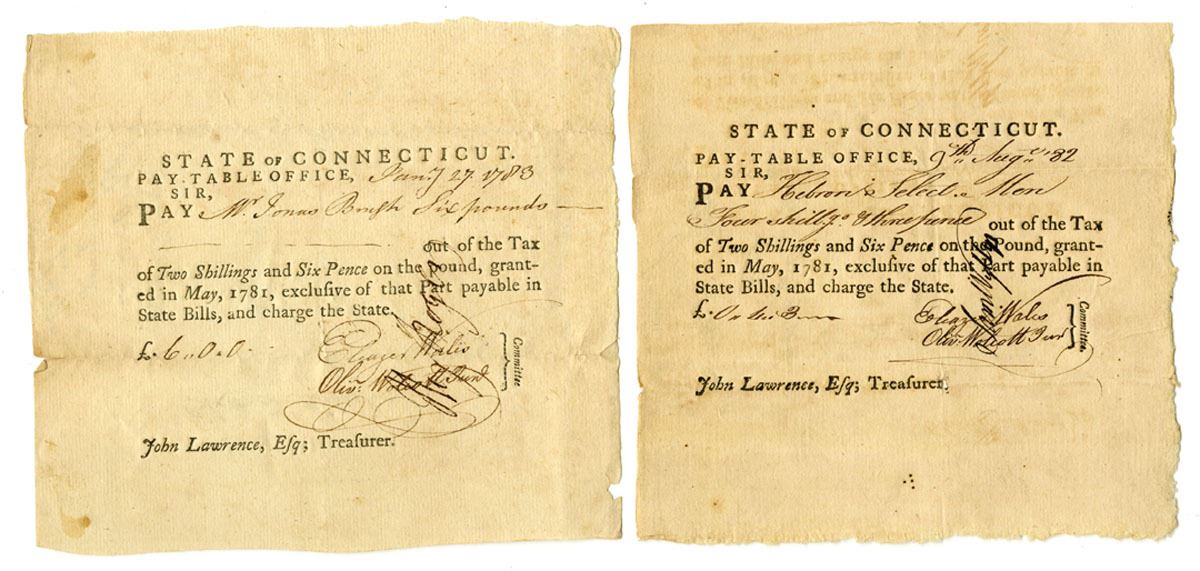 STATE OF CONNECTICUT.
PAY-TABLE OFFICE, Jany 27 1783
SIR,
PAY Mr Jonas Brush Six pounds
out of the Tax
of Two Shillings and Six Pence on the pound, grant-
ed in May, 1781, exclusive of that Part payable in
State Bills, and charge the State.
£. 6 „ 0 „ 0
Eleazer Wales
Olivr Wolcott Junr
Committee
John Lawrence, Eſq; Treaſurer.
STATE OF CONNECTICUT.
PAY-TABLE OFFICE, 9th Augt '82
SIR,
PAY Hebron Select Men
Four Shillgs & three pence out of the Tax
of Two Shillings and Six Pence on the Pound, grant-
ed in May, 1781, exclusive of that Part payable in
State Bills, and charge the State.
£. 0
Eleazer Wales
Olivr Wolcott Junr
Committee
John Lawrence, Eſq; Treaſurer.